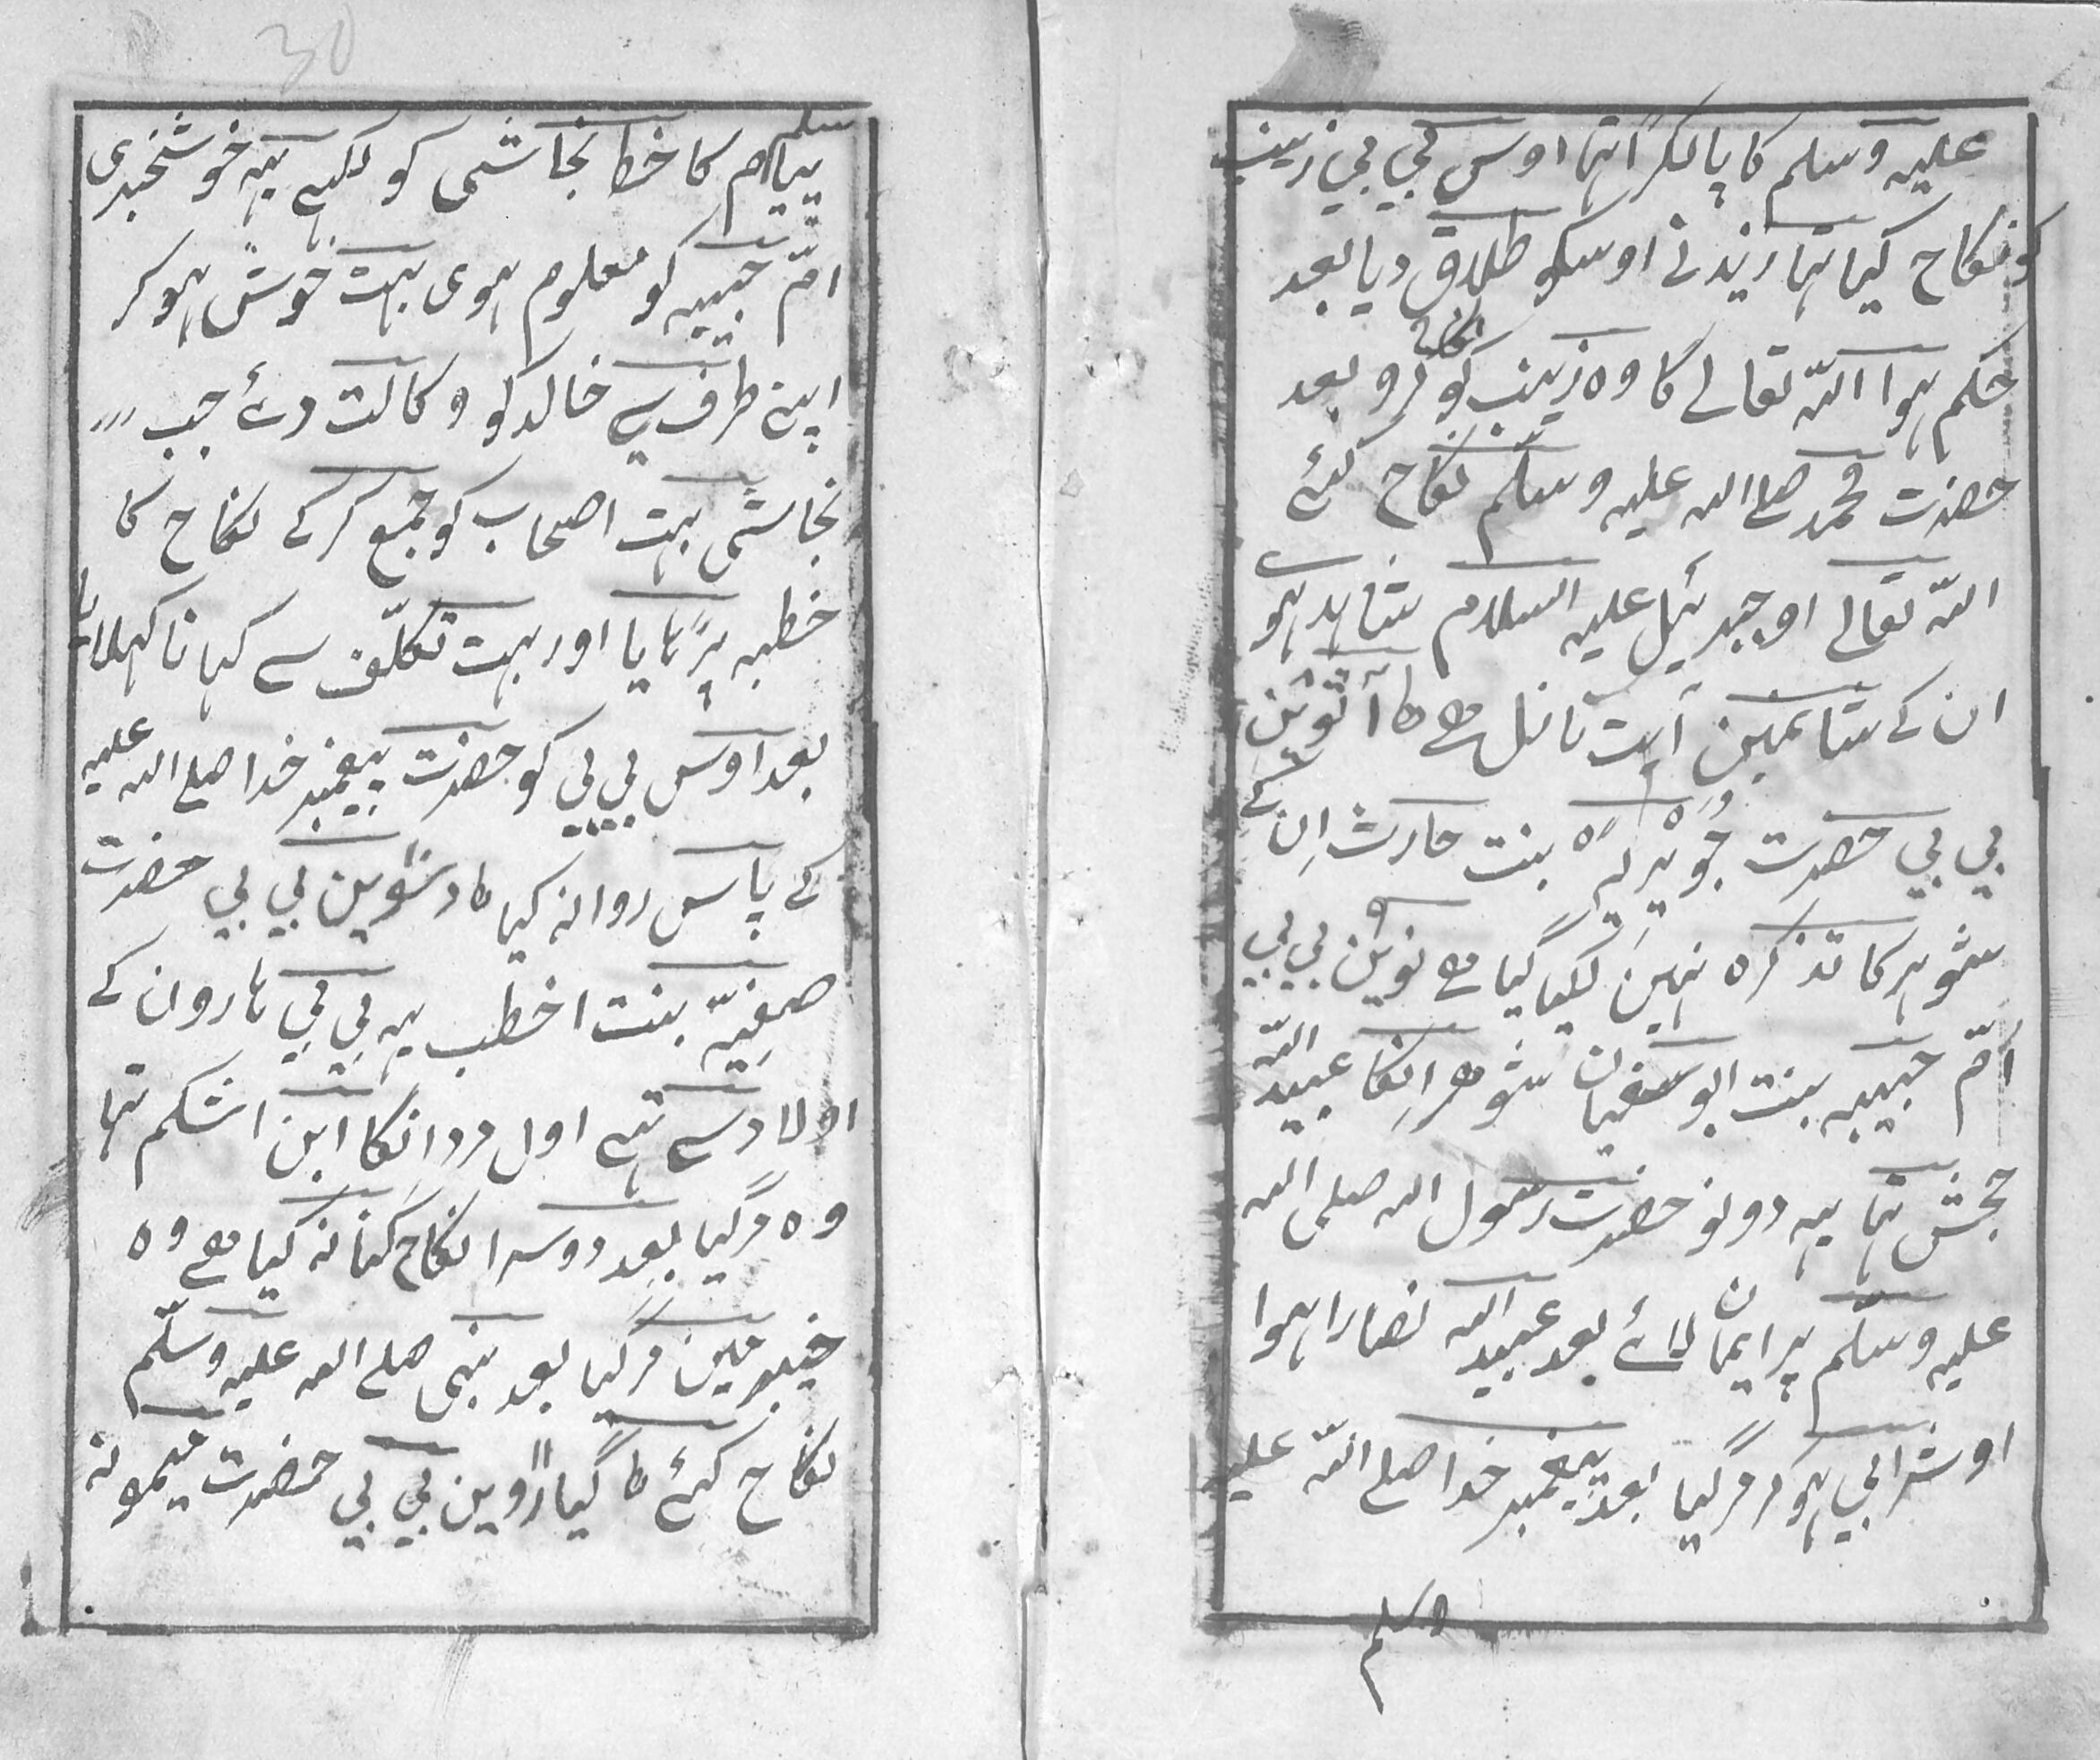 علیہ وسلم کا پالکڑا تہا اوس بی بی زینب
کو نکاح کیا تہا زید نے اوسکو طلاق دیا بعد
حکم ہوا اللہ تعالے کا وہ زینب کو نکاح کرو بعد
حضرت محمد صلے اللہ علیہ وسلم نکاح کئے
اللہ تعالے او جبرئیل علیہ السلام شاہد ہوے
ان کے شانمین آیت نازل ہے ۸ آٹوین
بی بی حضرت جویریہ بنت حارث اِن کے
شوہر کا تذکرہ نہین لکہا گیا ہے ۹ نوین بی بی
اُمّ حبیبہ بنت ابو سفیان شوہر اِنکا عبید اللہ
حجش تہا یہہ دونو حضرت رسول اللہ صلی اللہ
علیہ وسلّم پر ایمان لائے بعد عبید اللہ نصارا ہوا
او شرابی ہوکر مرگیا بعد پیغمبر خدا صلے اللہ علیہ
وسلم
سلم پیام کا خط نجاشی کو لکہے یہہ خوشخبری
امّ حبیبہ کو معلوم ہوی بہت خوش ہوکر
اپنے طرف سے خالد کو وکالت دئے جب
نجاشی بہت اصحاب کو جمع کرکے نکاح کا
خطبہ پڑہایا اور بہت تکلّف سے کہانا کہلایا
بعد اوس بی بی کو حضرت پیغمبر خدا صلے اللہ علیہ
کے پاس روانہ کیا ۱۰ دسوین بی بی حضرت
صفیّہ بنت اخطب یہ بی بی ہارون کے
اولاد سے تہے اول مرد انکا ابن اشکم تہا
وہ مرگیا بعد دوسرا نکاح کنانہ کیا ہے وہ
خیبر مین مرگیا بعد نبی صلے اللہ علیہ وسلّم
نکاح کئے ۱۱ گیاروین بی بی حضرت میمونہ